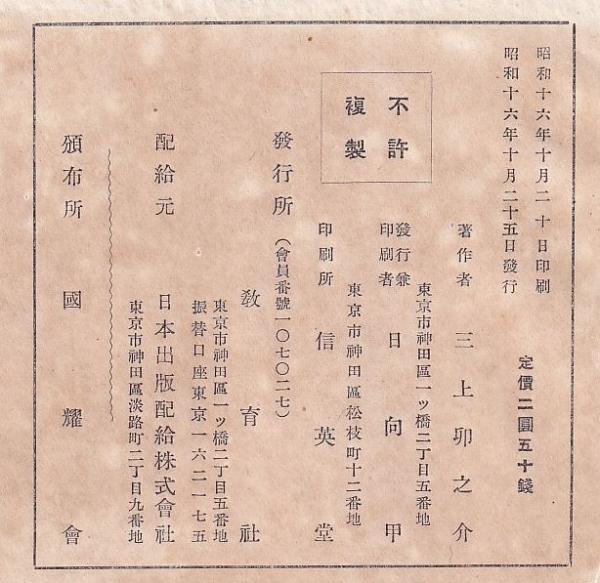 昭和十六年十月二十日印刷
昭和十六年十月二十五日發行
定價二圓五十錢
不許
複製
著作者 三上卯之介
東京市神田區一ッ橋二丁目五番地
發行兼
印刷者 日向甲
東京市神田區松枝町十二番地
印刷所 信英堂
發行所 (會員番號一〇七〇二七) 教育社
東京市神田區一ッ橋二丁目五番地
振替口座東京一六二一七五
配給元 日本出版配給株式會社
東京市神田區淡路町二丁目九番地
頒布所 國耀會